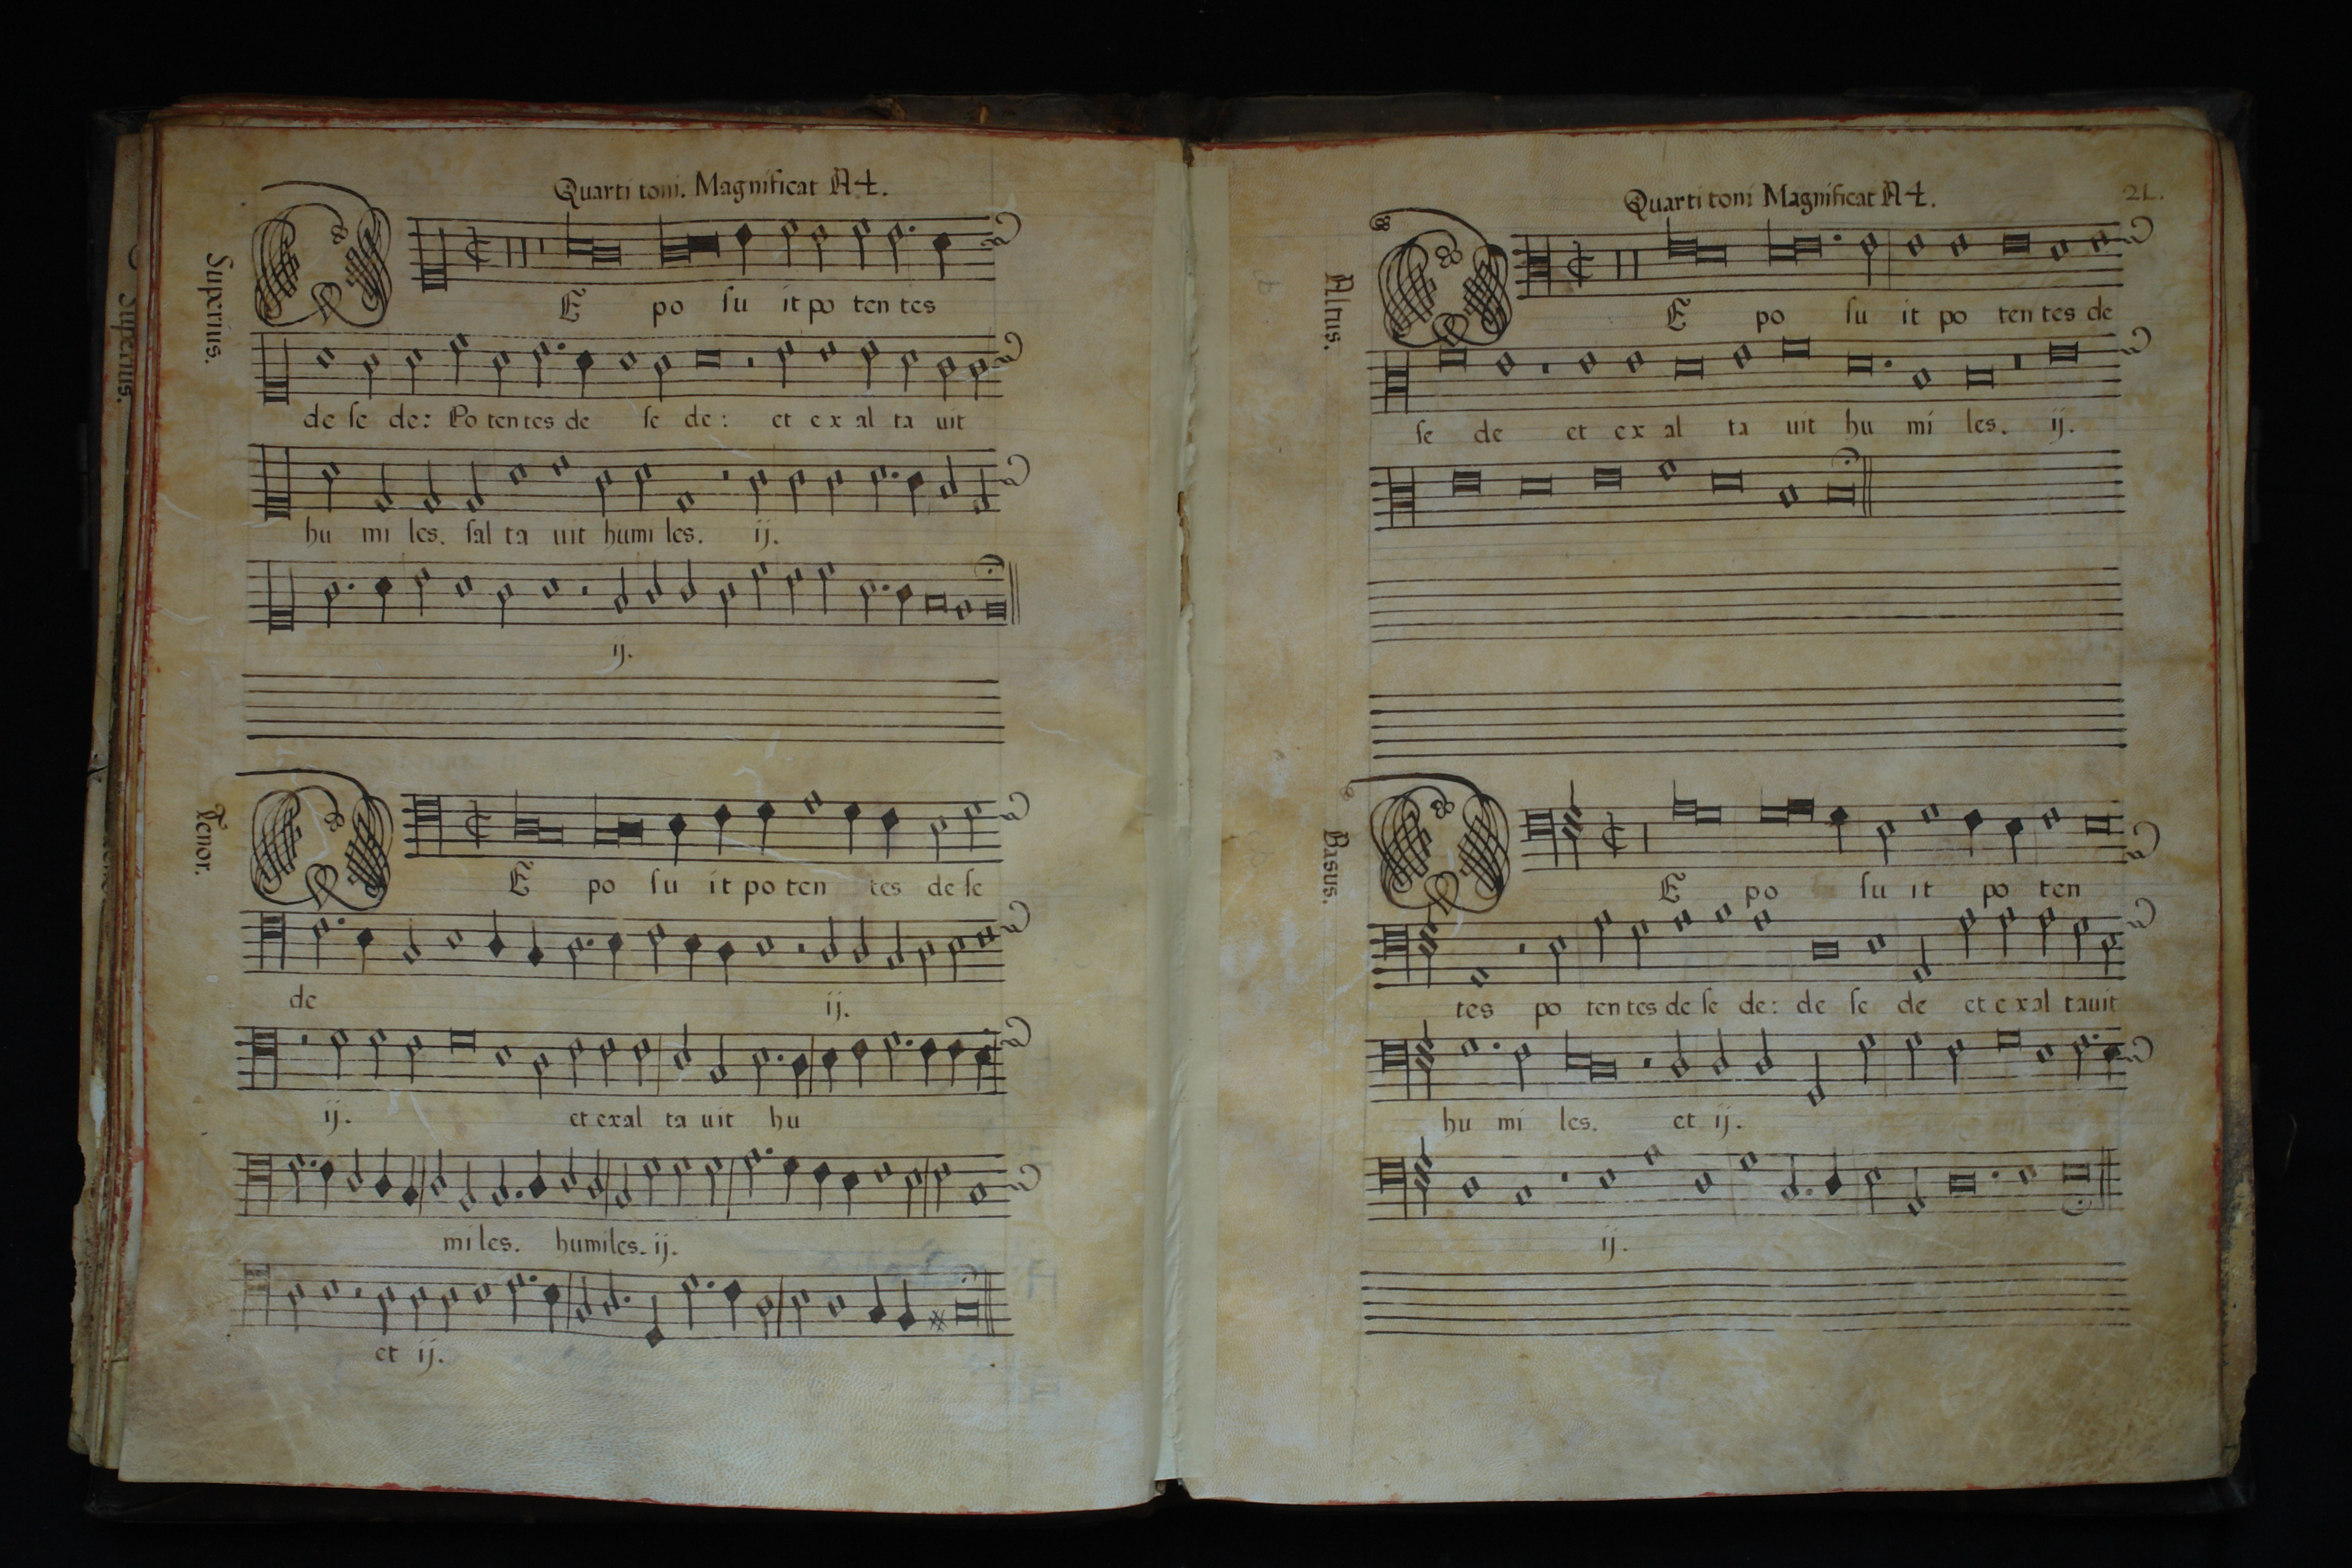 Quarti toni. Magnificat A4.
Superius.
DE po su it po ten tes
de se de: Po ten tes de se de: et ex al ta uit
hu mi les. sal ta uit humi les. ij.
ij.
Tenor.
DE po su it po ten tes de se
de ij.
ij. et exal ta uit hu
mi les. humiles. ij.
et ij.
Quarti toni Magnificat A4.
21.
Altus.
DE po su it po ten tes de
se de et ex al ta uit hu mi les. ij.
Basus.
DE po su it po ten
tes po ten tes de se de: de se de et exal tauit
hu mi les. et ij.
ij.